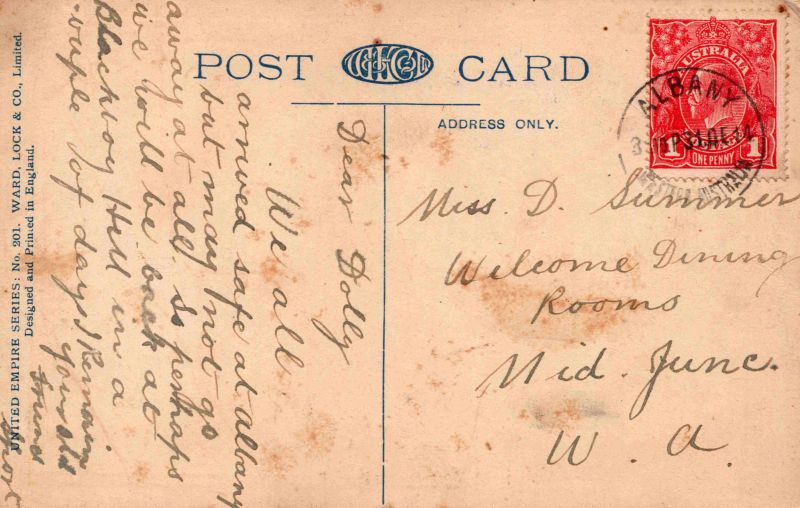 POST CARD
ADDRESS ONLY.
AUSTRALIA
1 1
ONE PENNY
ALBANY
WESTERN AUSTRALIA
Miss D. Summer
Welcome Dining
Rooms
Mid. Junc.
W. A.
Dear Dolly
We all
arrived safe at albany
but may not go
away at all. So perhaps
we will be back at
Blackboy Hill in a
couple of days I Remain
your old
sport
UNITED EMPIRE SERIES: No. 201. WARD, LOCK & CO., Limited.
Designed and Printed in England.